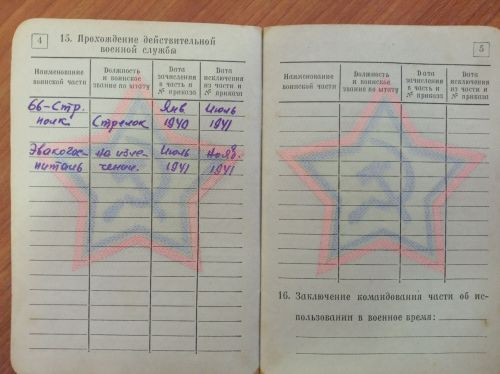 4
15. Прохождение действительной
военной службы
Наименование
воинской части
Должность
и воинское
звание по штату
Дата
зачисления
в часть и
№ приказа
Дата
исключения
из части и
№ приказа
66-Стр. Янв Июль
полк. Стрелок 1940 1941
Эвакогос- на изле- Июль Нояб.
питаль чении. 1941 1941
5
Наименование
воинской части
Должность
и воинское
звание по штату
Дата
зачисления
в часть и
№ приказа
Дата
исключения
из части и
№ приказа
16. Заключение командования части об ис-
пользовании в военное время: